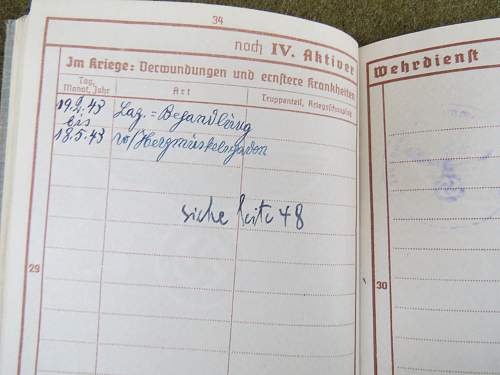 34
noch IV. Aktiver Wehrdienst
Im Kriege: Verwundungen und ernstere Krankheiten
Tag, Monat, Jahr
Art
Truppenteil, Kriegsschauplatz
19.2.43 Laz.=Behandlung
bis
18.5.43 w/Herzmuskelschaden
siehe Seite 48
29
30